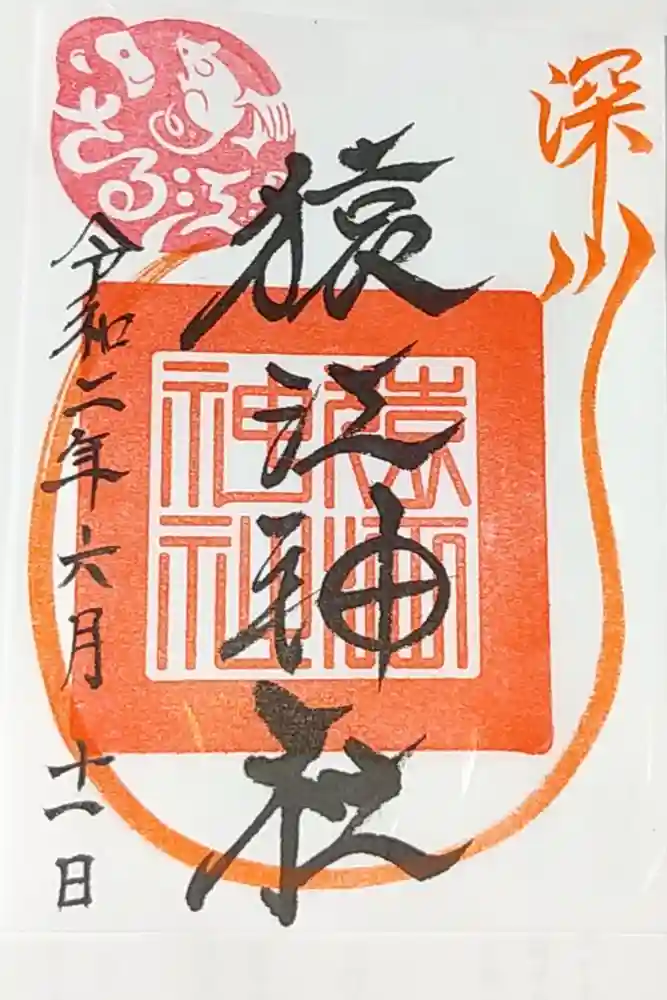 深川
猿江神社
猿江
神社
さる江
令和二年六月十一日